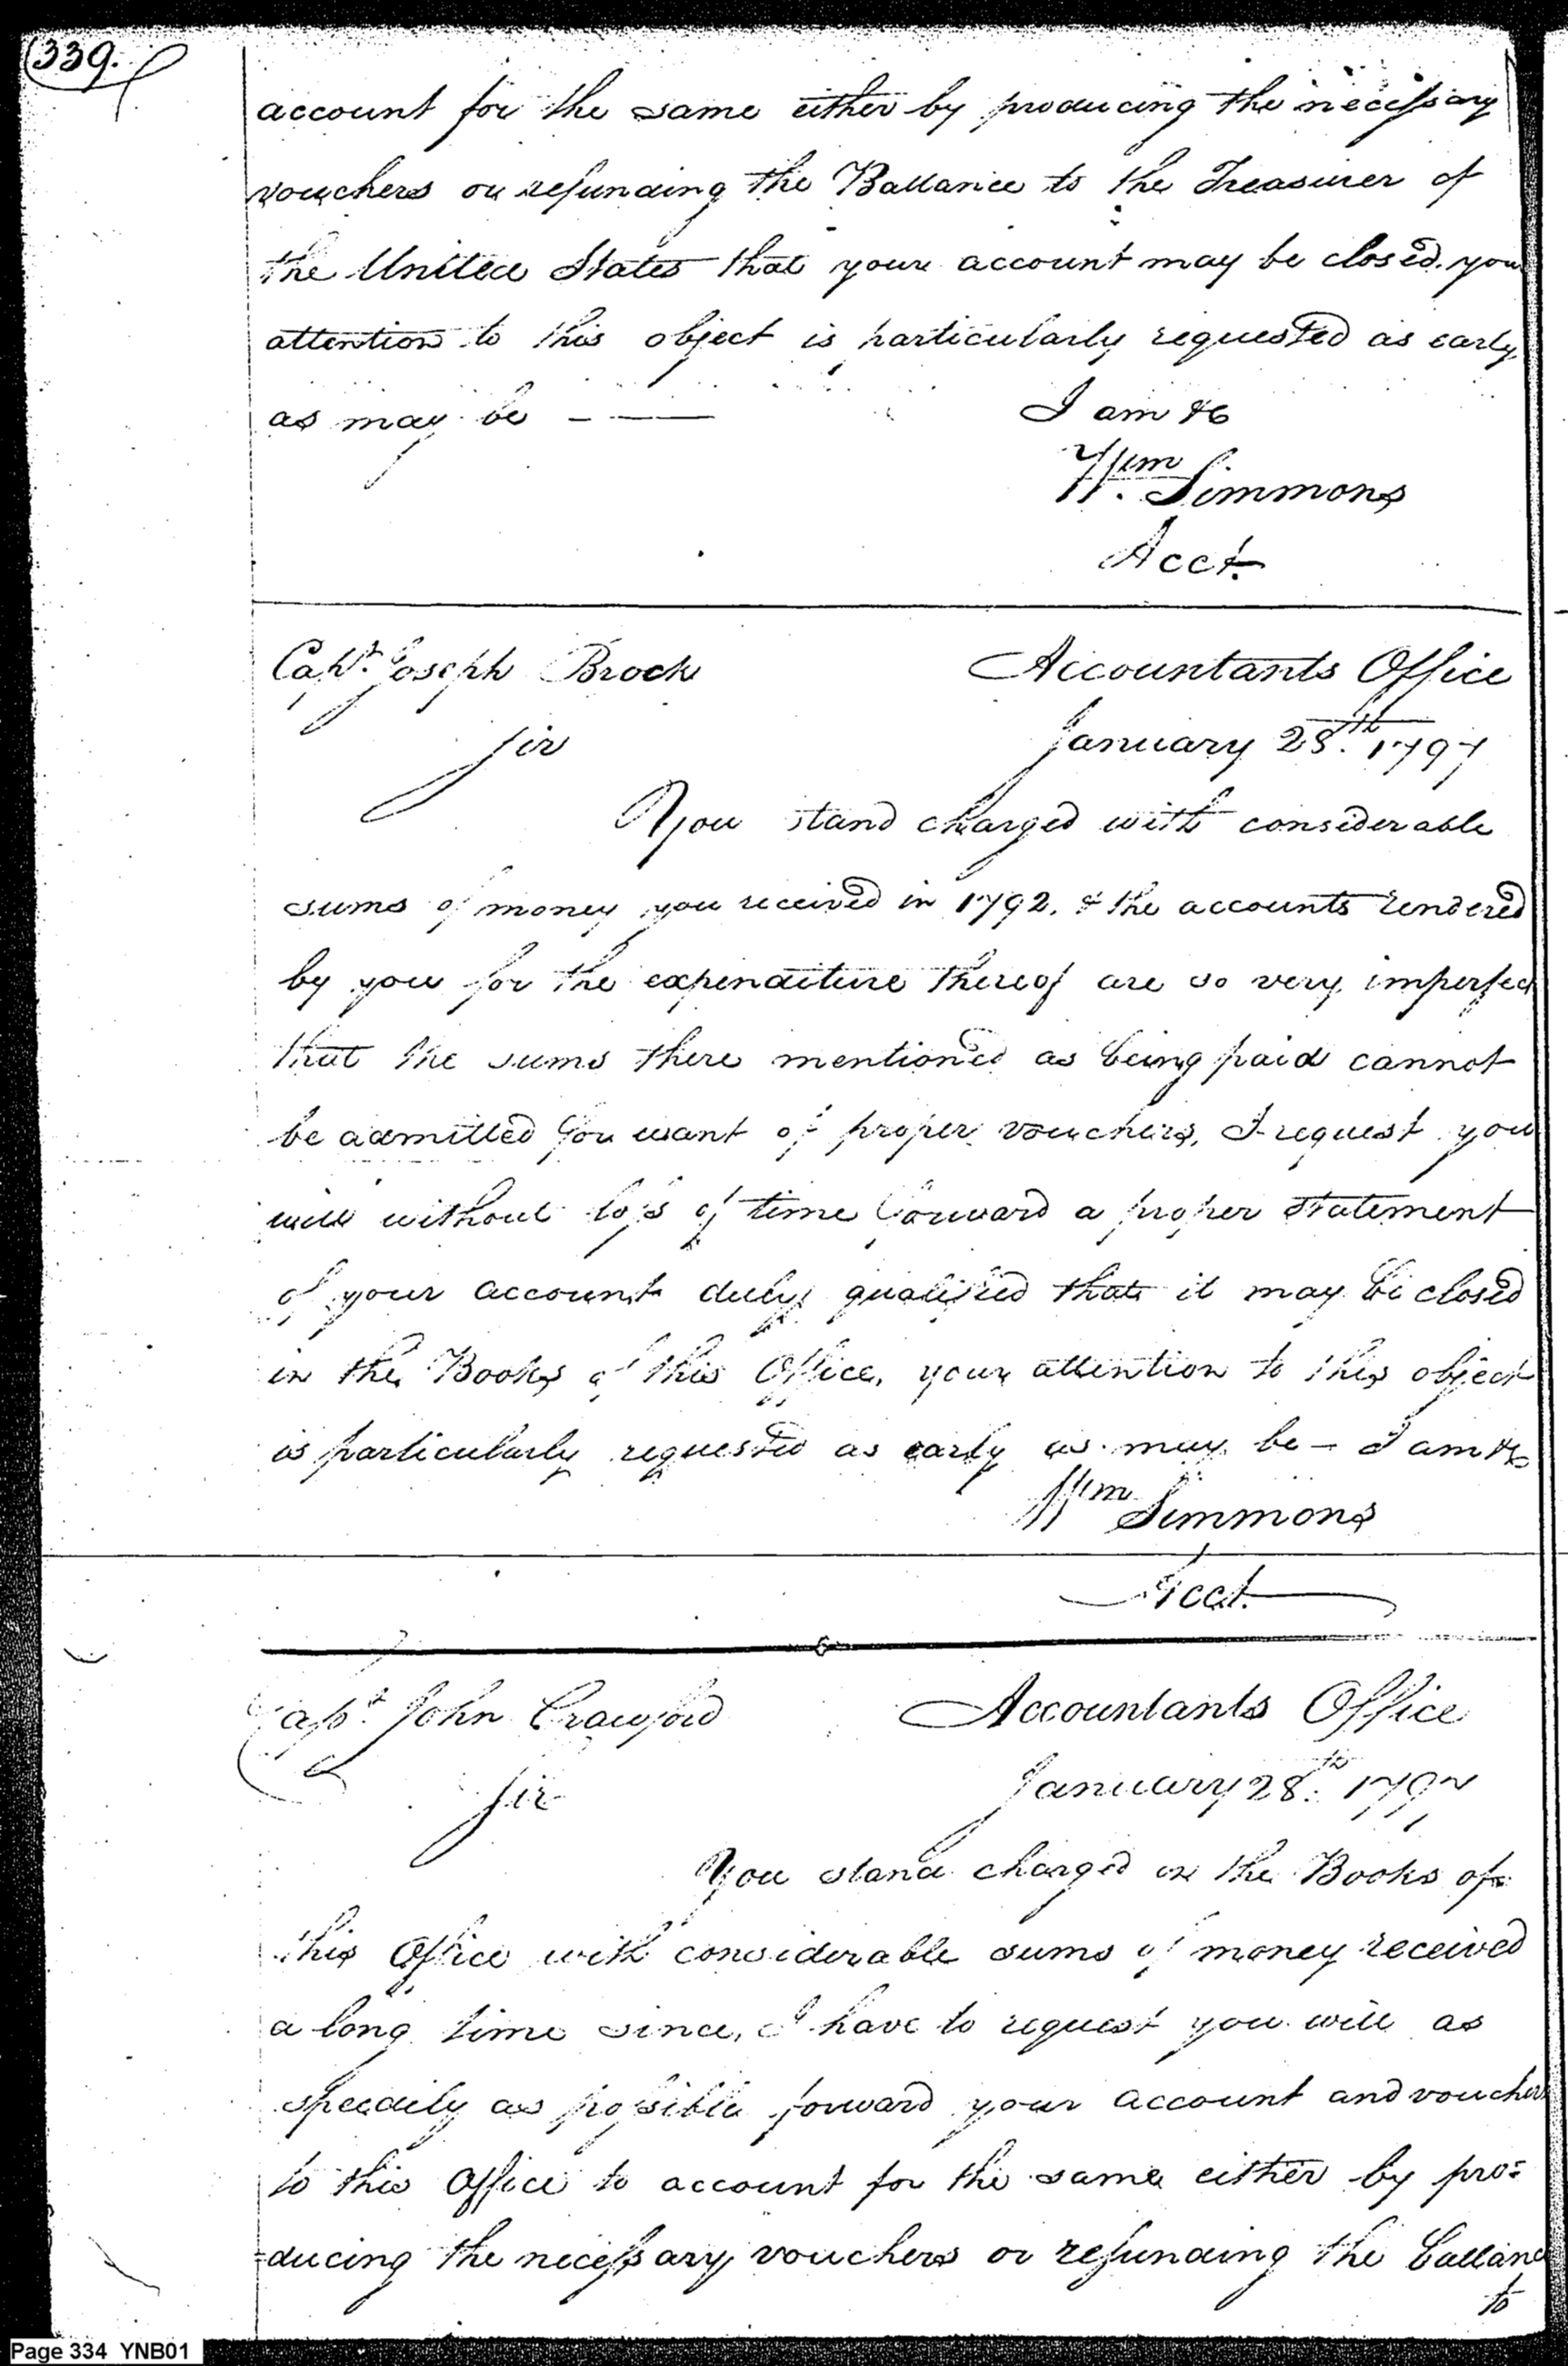 339.
account for the same either by producing the necessary
vouchers or refunding the Ballance to the Treasurer of
the United States that your account may be closed. your
attention to this object is particularly requested as early
as may be - —
I am &c
Wm Simmons
Acct.
Capt. Joseph Brock
Accountants Office
Sir
January 28.th 1797
You stand charged with considerable
sums of money you received in 1792. & the accounts rendered
by you for the expenditure thereof are so very imperfect
that the sums there mentioned as being paid cannot
be admitted for want of proper vouchers, I request you
will without loss of time forward a proper statement
of your account duly qualified that it may be closed
in the Books of this Office, your attention to this object
is particularly requested as early as may be - I am &c
Wm Simmons
Acct.
Capt. John Crawford
Accountants Office
Sir
January 28.th 1797
You stand charged on the Books of
this Office with considerable sums of money received
a long time since, I have to request you will as
speedily as possible forward your account and vouchers
to this Office to account for the same either by pro=
=ducing the necessary vouchers or refunding the Ballance
to
Page 334 YNB01